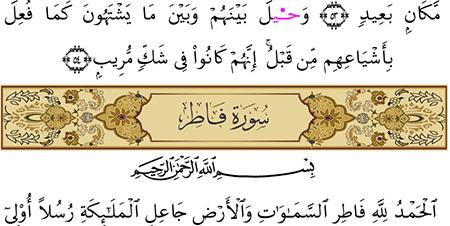 مَّكَانِۭ بَعِيدٍ ﴿٥٣﴾ وَحِيلَ بَيْنَهُمْ وَبَيْنَ مَا يَشْتَهُونَ كَمَا فُعِلَ
بِأَشْيَاعِهِم مِّن قَبْلُ ۚ إِنَّهُمْ كَانُوا۟ فِى شَكٍّ مُّرِيبٍۭ ﴿٥٤﴾
سُورَةُ فَاطِرٍ
بِسْمِ ٱللَّهِ ٱلرَّحْمَٰنِ ٱلرَّحِيمِ
ٱلْحَمْدُ لِلَّهِ فَاطِرِ ٱلسَّمَٰوَٰتِ وَٱلْأَرْضِ جَاعِلِ ٱلْمَلَٰٓئِكَةِ رُسُلًا أُو۟لِىٓ